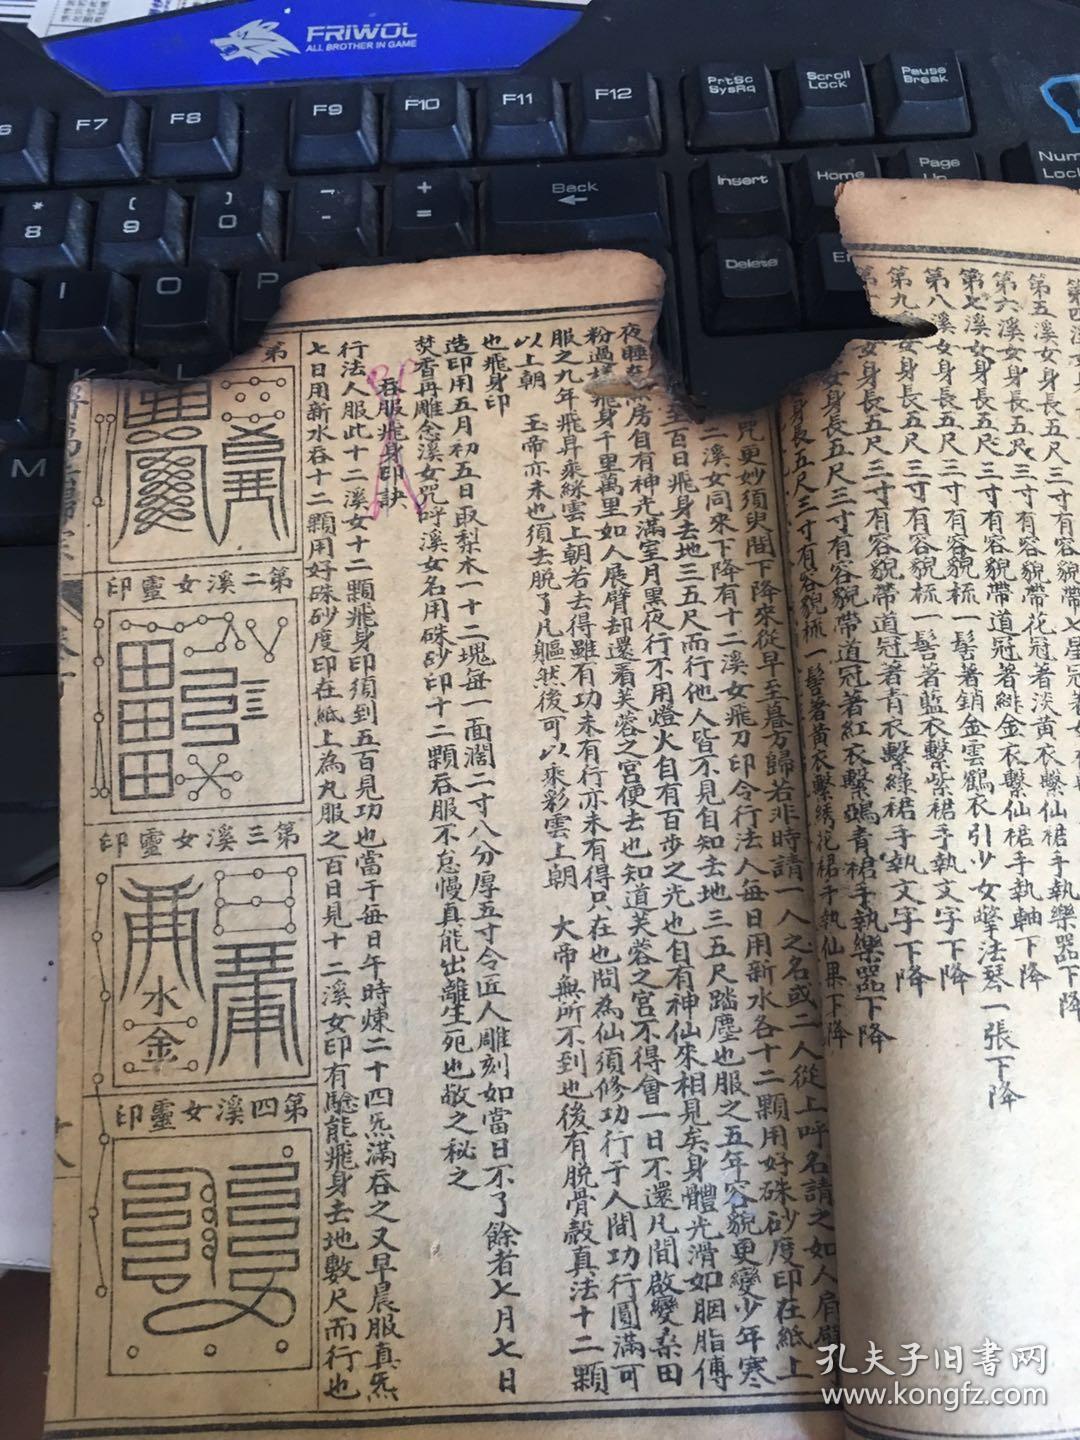 FRIWOL
ALL BROTHER IN GAME
F7
F8
F9
F10
F11
F12
PrtSc
SysRq
Scroll
Lock
Pause
Break
*
8
(
9
)
0
-
+
=
Back
Insert
Home
Page
Num
Lock
I
O
P
Delete
M
第五溪女身長五尺三寸有容貌帶花冠著淡黃衣繫仙裙手執軸下降
第六溪女身長五尺三寸有容貌帶道冠著緋金衣繫仙裙手執軸下降
第七溪女身長五尺三寸有容貌梳一髻著銷金雲鶴衣引少女擎法琴一張下降
第八溪女身長五尺三寸有容貌梳一髻著藍衣繫紫裙手執文字下降
第九溪女身長五尺三寸有容貌帶道冠著青衣繫綠裙手執文字下降
女身長五尺三寸有容貌帶道冠著紅衣繫鴉青裙手執樂器下降
身長五尺三寸有容貌梳一髻著黃衣繫綉花裙手執仙果下降
咒更妙須臾間下降來從早至暮方歸若非時請一人之名或二人從上呼名請之如人肩
二溪女同來下降有十二溪女飛刀印令行法人每日用新水各十二顆用好硃砂度印在紙上
至百日飛身去地三五尺而行他人皆不見自知去地三五尺踏塵也服之五年容貌更變少年寒
夜睡 房自有神光滿室月黑夜行不用燈火自有百步之光也自有神仙來相見矣身體光滑如胭脂傅
粉過 飛身千里萬里如人展臂却還看芙蓉之宮便去也知道芙蓉之宮不得會一日不還凡間啟變桑田
服之九年飛昇乘綵雲上朝若去得雖有功未有行亦未有得只在也問為仙須修功行于人間功行圓滿可
以上朝 玉帝亦未也須去脫了凡軀然後可以乘彩雲上朝 大帝無所不到也後有脫骨殼真法十二顆
也飛身印
造印用五月初五日取梨木一十二塊每一面濶二寸八分厚五寸令匠人雕刻如當日不了餘者七月七日
焚香再雕念溪女咒呼溪女名用硃砂印十二顆吞服不怠慢真能出離生死也敬之秘之
吞服飛身印訣
行法人服此十二溪女十二顆飛身印須到五百見功也當于每日午時煉二十四炁滿吞之又早晨服真炁
七日用新水吞十二顆用好硃砂度印在紙上為丸服之百日見十二溪女印有驗能飛身去地數尺而行也
第二溪女靈印
第三溪女靈印
水
金
第四溪女靈印
孔夫子旧书网
www.kongfz.com